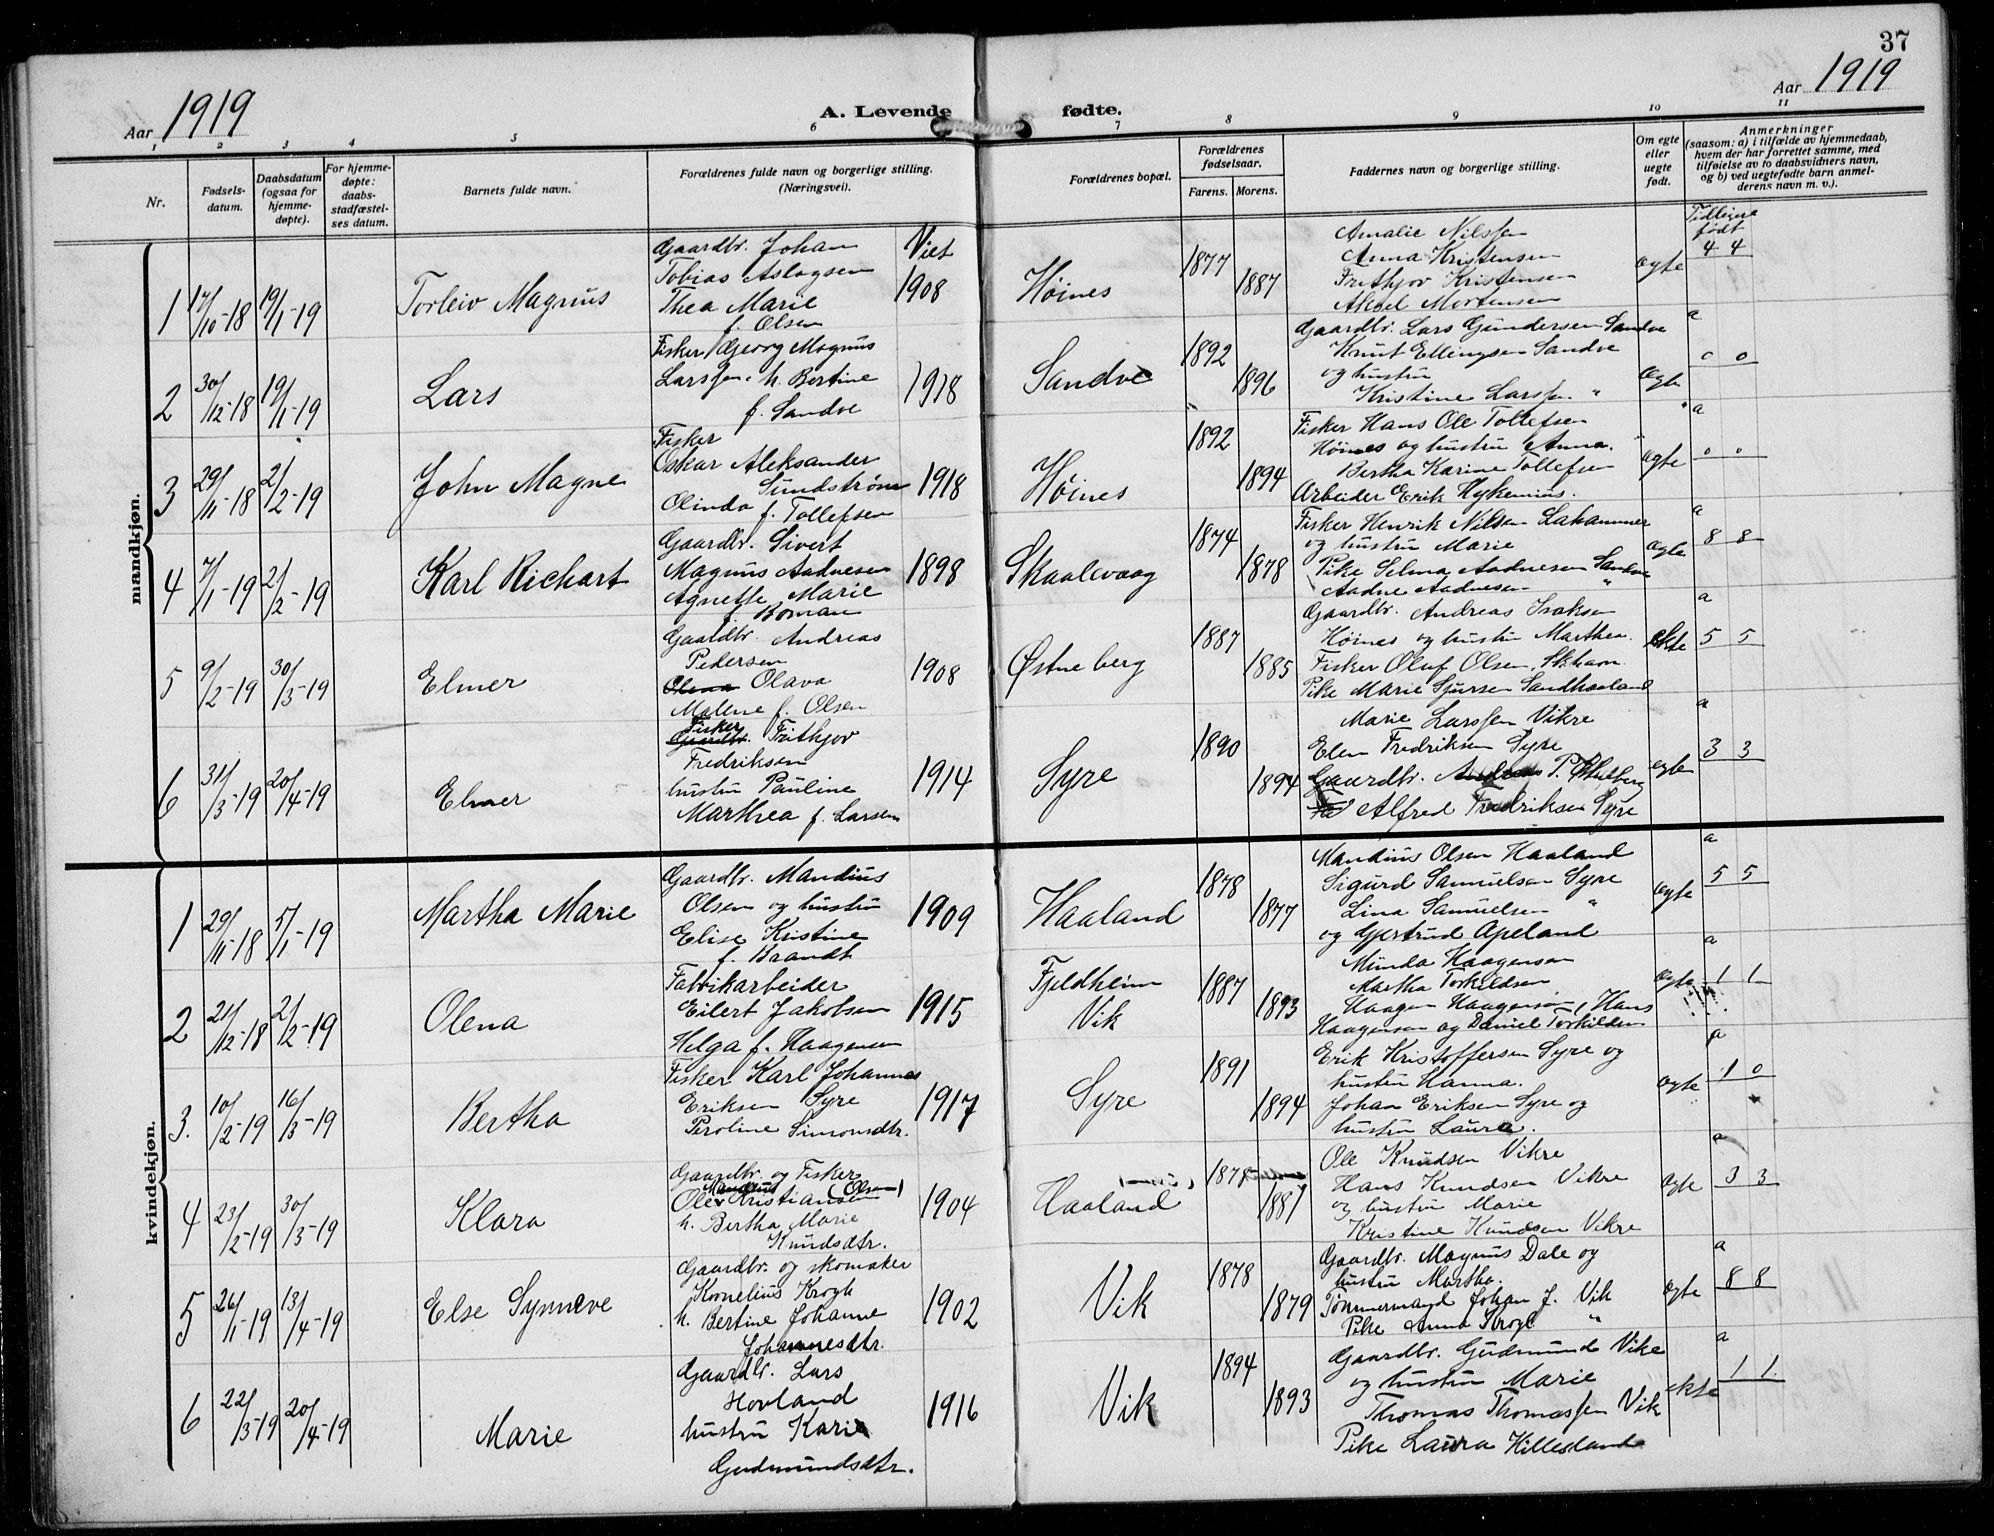 37
Aar 1919
A. Levende fødte.
Aar 1919
1 2 3 4 5 6 7 8 9 10 11
Nr.
Fødsels-
datum.
Daabsdatum
(ogsaa for
hjemme-
døpte).
For hjemme-
døpte:
daabs-
stadfæstel-
ses datum.
Barnets fulde navn.
Forældrenes fulde navn og borgerlige stilling.
(Næringsvei).
Forældrenes bopæl.
Forældrenes
fødselsaar.
Farens. Morens.
Faddernes navn og borgerlige stilling.
Om egte
eller
uegte
født.
Anmerkninger
(saasom: a) i tilfælde av hjemmedaab,
hvem der har forrettet samme, med
tilføielse av to daabsvidners navn,
og b) ved uegtefødte barn anmel-
derens navn m. v.).
mandkjøn.
1 17/10-18 19/1-19 Torleiv Magnus
Gaardbr. Johan
Tobias Aslagsen
Thea Marie
f. Olsen
Viet
1908
Høines
1877 1887
Amalie Nilssen
Anna Kristensen
Frithjov Kristensen
Aksel Mortensen
egte
Tidligere
født
4 4
2 30/12-18 19/1-19 Lars
Fisker Georg Magnus
Larssen. h. Bertine
f. Sandve
1918
Sandve
1892 1896
Gaardbr. Lars Gundersen Sandve
Knut Ellingsen Sandve
og hustru
Kristine Larssen "
egte
a
0 0
3 29/11-18 2/2-19 John Magne
Fisker
Oskar Aleksander
Sundstrøm
Olinda f. Tollefsen
1918
Høines
1892 1894
Fisker Hans Ole Tollefsen
Høines og hustru Anna.
Bertha Karine Tollefsen
Arbeider Erik Hykenius.
egte
a
0 0
4 7/1-19 2/2-19 Karl Richart
Gaardbr. Sivert
Magnus Aadnesen
Agnethe Marie
f. Boman
1898
Skaalevaag
1874 1878
Fisker Henrik Nilsen Lahammer
og hustru Marie
Pike Selma Aadnesen Sandve
Aadne Aadnesen "
egte
a
8 8
5 9/2-19 30/3-19 Elmer
Gaardbr. Andreas
Pedersen
Olena Olava
Malene f. Olsen
1908
Østneberg
1887 1885
Gaardbr. Andreas Isaksen
Høines og hustru Marthea.
Fisker Oluf Olsen, Skhavn
Pike Marie Sjursen Sandhaaland
ekte
a
5 5
6 31/3-19 20/4-19 Elmer
Fisker
Gaardbr. Frithjov
Fredriksen
hustru Pauline
Marthea f. Larsen
1914
Syre
1890 1894
Marie Larssen Vikre
Elen Fredriksen Syre
Gaardbr. Andreas P.
Alfred Fredriksen Syre
egte
a
3 3
kvindekjøn.
1 29/11-18 5/1-19 Martha Marie
Gaardbr. Mandius
Olsen og hustru
Elise Kristine
f. Brandt
1909
Haaland
1878 1877
Mandius Olsen Haaland
Sigurd Samuelsen Syre
Lina Samuelsen "
og Gjertrud Apeland
egte
a
5 5
2 21/12-18 2/2-19 Olena
Fabrikarbeider
Eilert Jakobsen
Helga f. Haagensen
1915
Fjeldheim
Vik
1887 1893
Minda Haagensen
Martha Torkildsen
Haagen Haagensen, Hans
Haagensen og Daniel Torkildsen
egte
a
1 1
3. 10/2-19 16/3-19 Bertha
Fisker Karl Johannes
Eriksen Syre
Peroline Simonsdtr.
1917
Syre
1891 1894
Erik Kristoffersen Syre og
hustru Hanna.
Johan Eriksen Syre og
hustru Laura.
egte
a
1 0
4 23/2-19 30/3-19 Klara
Gaardbr. og Fisker
Mandius (Olsen)
Ole Kristiansen
h. Bertha Marie
Knudsdtr.
1904
Haaland
1878 1881
Ole Knudsen Vikre
Hans Knudsen Vikre
og hustru Marie
Kristine Knudsen Vikre
egte
a
3 3
5 26/1-19 13/4-19 Else Synneve
Gaardbr. og skomaker
Kornelius Krogh
h. Bertine Johanne
Johannesdtr.
1902
Vik
1878 1879
Gaardbr. Magnus Dale og
hustru Martha.
Tømmermand Johan J. Vik
Pike Anna Krogh "
egte
a
8 8
6 22/3-19 20/4-19 Marie
Gaardbr. Lars
Hovland
hustru Karie
Gudmundsdtr.
1916
Vik
1894 1893
Gaardbr. Gudmund Vike
og hustru Marie
Thomas Thomassen Vik
Pike Laura Hillesland
ekte
a
1 1